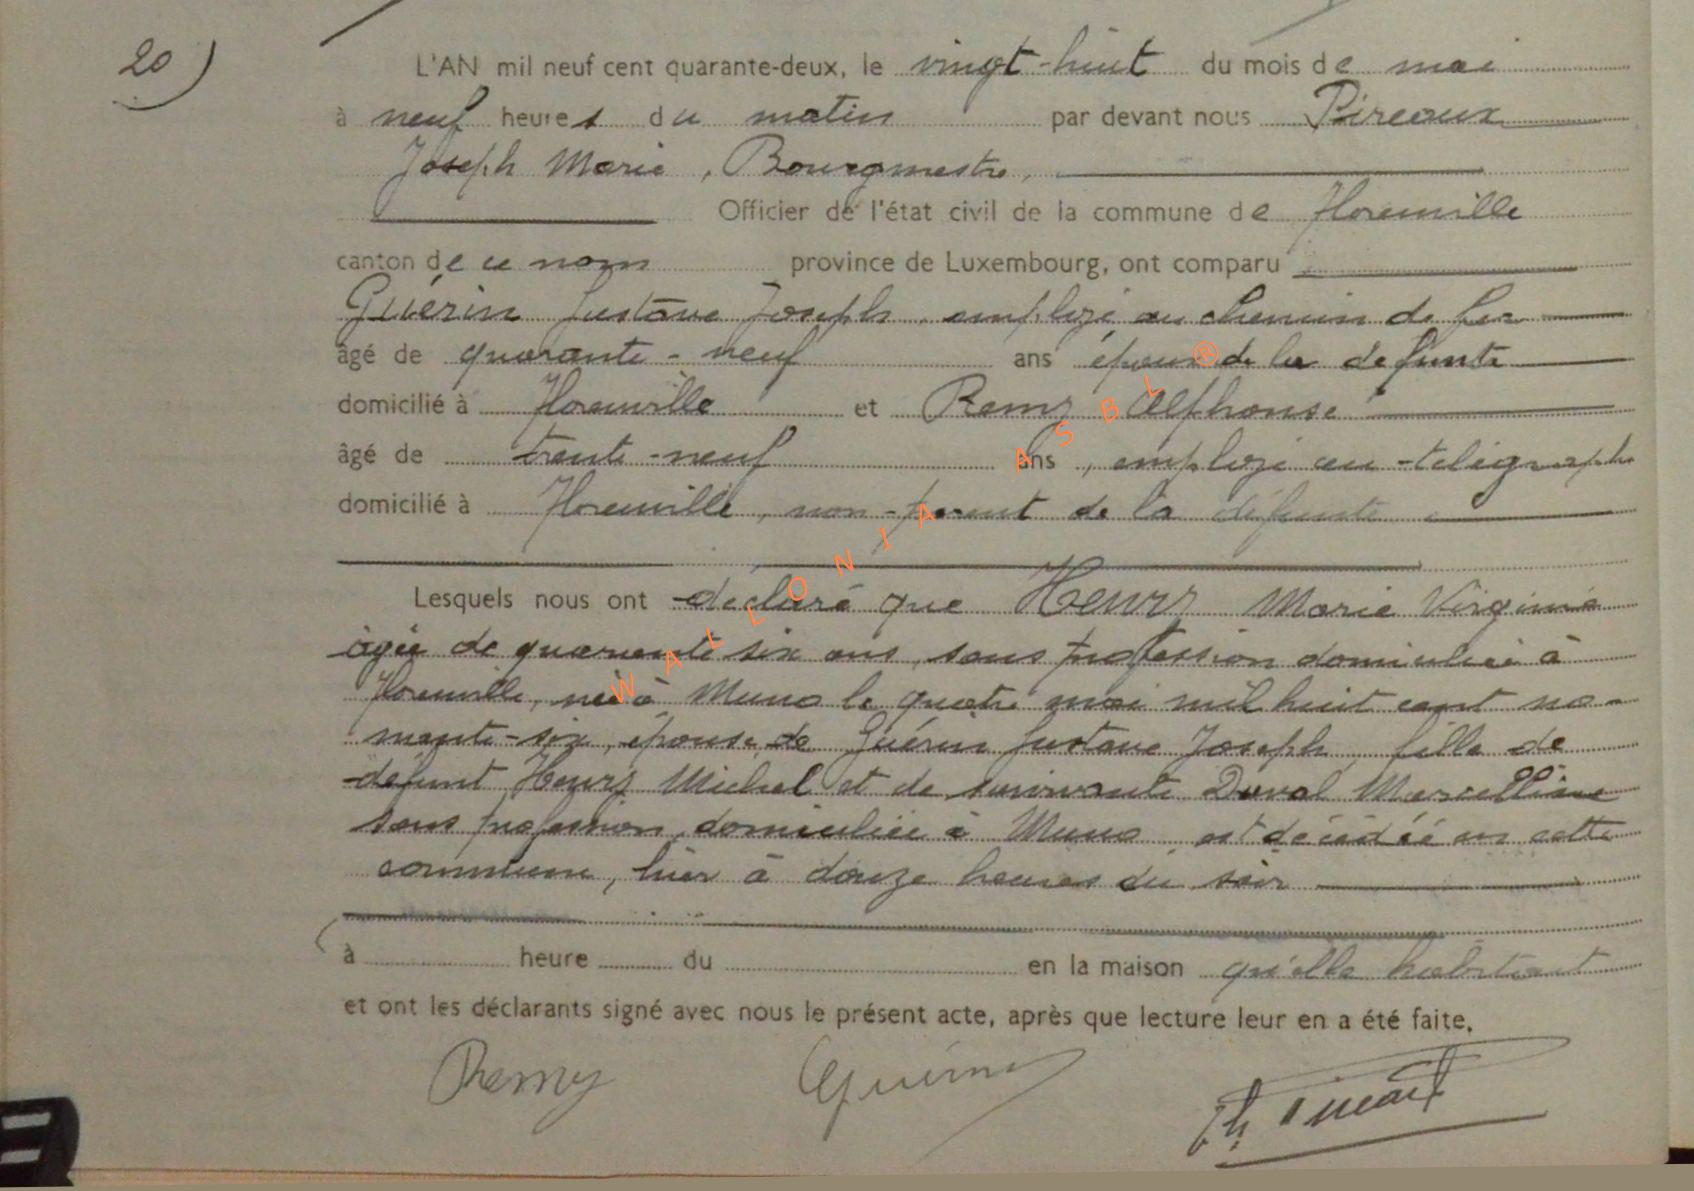 20)
L'AN mil neuf cent quarante-deux, le vingt-huit du mois de mai
à neuf heures du matin par devant nous Pireaux
Joseph Marie, Bourgmestre,
Officier de l'état civil de la commune de Florenville
canton de ce nom province de Luxembourg, ont comparu
Guérin Gustave Joseph, employé au chemin de fer
âgé de quarante-neuf ans époux de la défunte
domicilié à Florenville et Remy Alphonse
âgé de trente-neuf ans, employé au télégraphe
domicilié à Florenville, non-parent de la défunte
Lesquels nous ont déclaré que Henry Marie Virginie
âgée de quarante six ans, sans profession domiciliée à
Florenville, née à Muno le quatre mai mil huit cent no-
nante-six, épouse de Guérin Gustave Joseph, fille de
défunt Henry Michel et de survivante Duval Marcelline
sans profession, domiciliée à Muno est décédée en cette
commune, hier à douze heures du soir
à heure du en la maison qu'elle habitait
et ont les déclarants signé avec nous le présent acte, après que lecture leur en a été faite.
Remy GGuérin
WALLONIA ASBL®